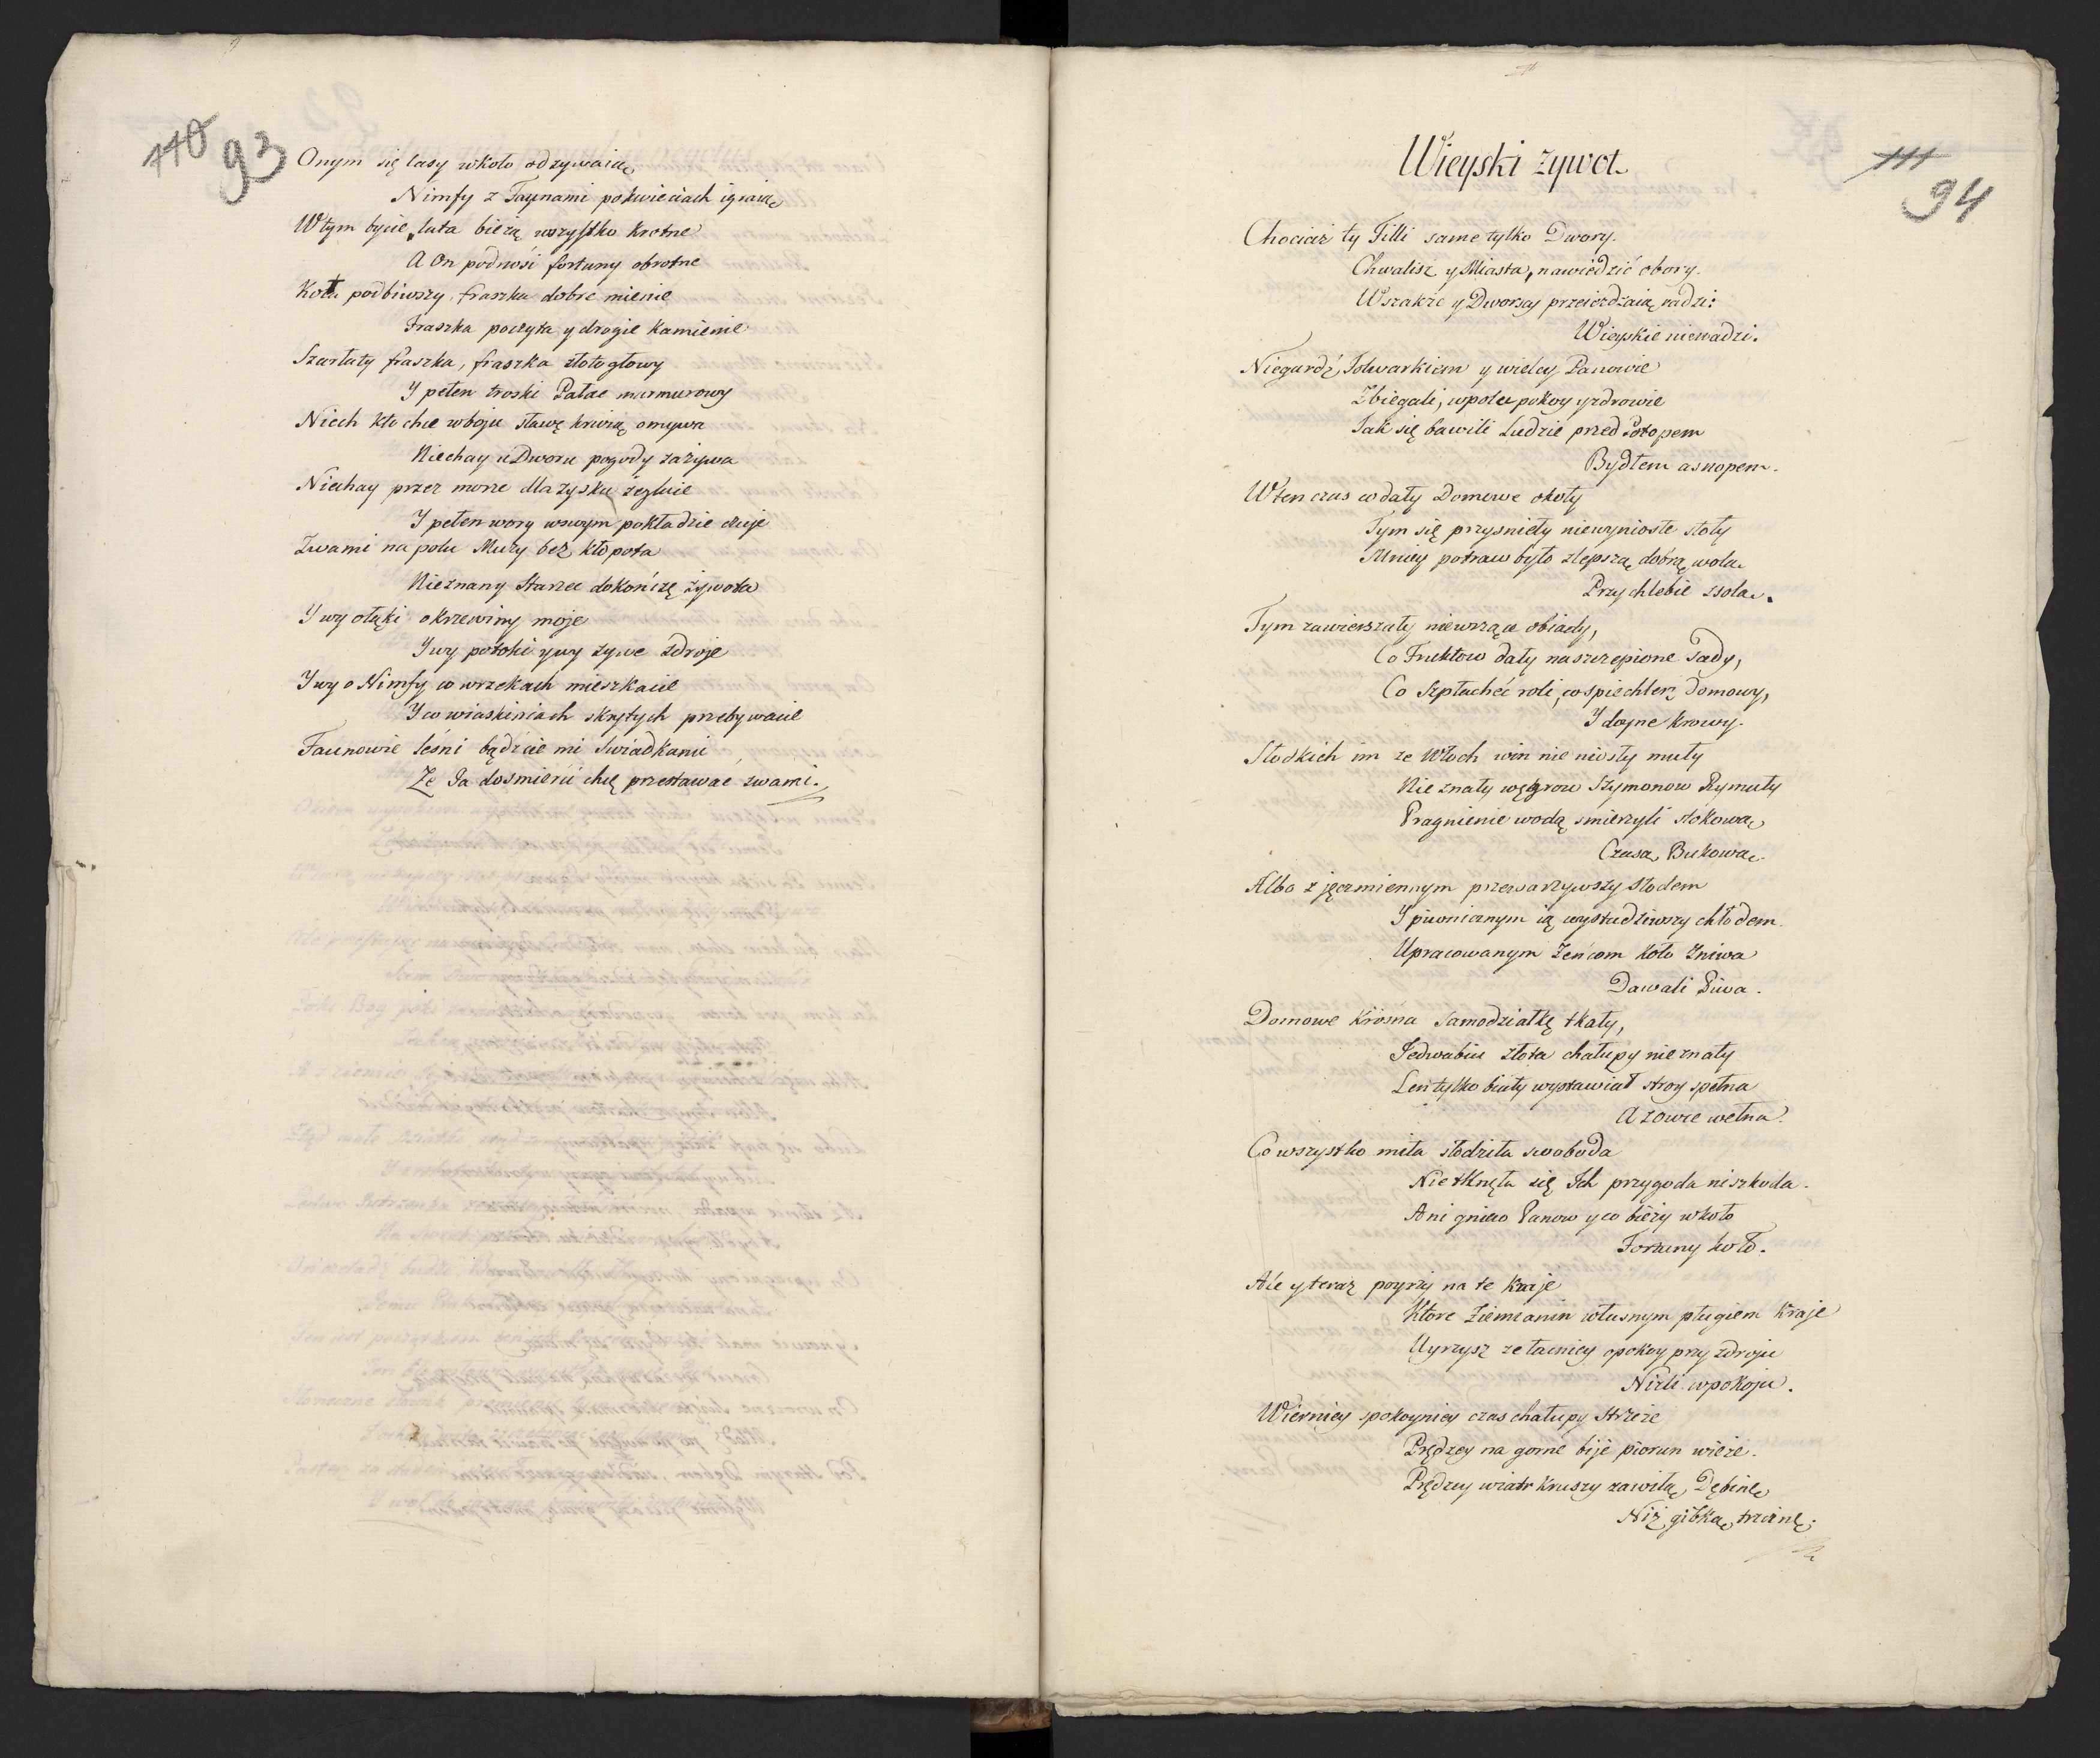 110 93
Onym się lasy wkoło odzywaią
Nimfy z Faynami pokwieciach igraią
Wtym bycie luta bieżą wszystko krotne
A On podnosi fortuny obrotne
Koła podbiwszy, fraszka dobre mienie
Fraszka poczyta y drogie kamienie
Szarłaty fraszka, fraszka złotogłowy
Y pełen troski Pałac marmurowy
Niech kto chce wboju sławę krwią omywa
Niechay u Dworu pogody zażywa
Niechay przez morze dla zysku żegluie
Y pełen wory wswym pokładzie czuje
Zwami na polu Muzy bez kłopota
Nieznany Starzec dokończę żywota
Y wy o łąki o krzewiny moje
Y wy potoki y wy żywe zdroje
Y wy o Nimfy co wrzekach mieszkacie
Y co wiaskiniach skrytych przebywacie
Faunowie leśni bądźcie mi Swiadkami
Że Ja dosmierci chcę przestawać zwami.
111
94
Wieyski żywot.
Chociaż ty Filli same tylko Dwory.
Chwalisz y Miasta, nawiedzić obory.
Wszakże y Dworscy przeieżdżaią radzi:
Wieyskie niewadzi.
Niegardź Folwarkiem y wielcy Panowie
Zbiegali, wpolu pokoy y zdrowie
Jak się bawili Ludzie przed Potopem
Bydłem a snopem.
Wten czas co dały Domowe okoły
Tym się przysnieły niewyniosłe stoły
Mniey potraw było zlepszą dobrą wolą
Przy chlebie zsolą.
Tym zawierszały niewrzące obiady,
Co Fruktow dały naszczepione Sady,
Co Szpłacheć roli, co spiechlerz Domowy,
Y doyne krowy.
Słodkich im ze Włoch win nie niosły muły
Nie znały węgrow Szymonow Rymuły
Pragnienie wodą smierzyli stokową
Czaszą Bukową.
Albo z jęczmiennym przewarzywszy Słodem
Y piwnicznym ią wystudziwszy chłodem.
Upracowanym Żeńcom koło Żniwa
Dawali Piwa.
Domowe Krosna Samodziałkę tkały,
Jedwabiu złota chałupy nie znały
Len tylko biały wystawiał stroy spełna
A zowce wełna.
Co wszystko miła słodziła swoboda
Nie tknęła się Ich przygoda ni szkoda.
Ani gniew Panow y co bieży wkoło
Fortuny koło.
Ale y teraz poyrzy na te Kraje
Ktore Ziemianin własnym pługiem kraje
Uyrzysz że łacniey opokoy przy zdroju
Niżli wpokoju.
Wierniey spokoyniey czas chałupy strzeże
Prędzey na gorne bije piorun wieże.
Prędzey wiatr kruszy zawiłą Dębinę
Niż gibką trzcinę.